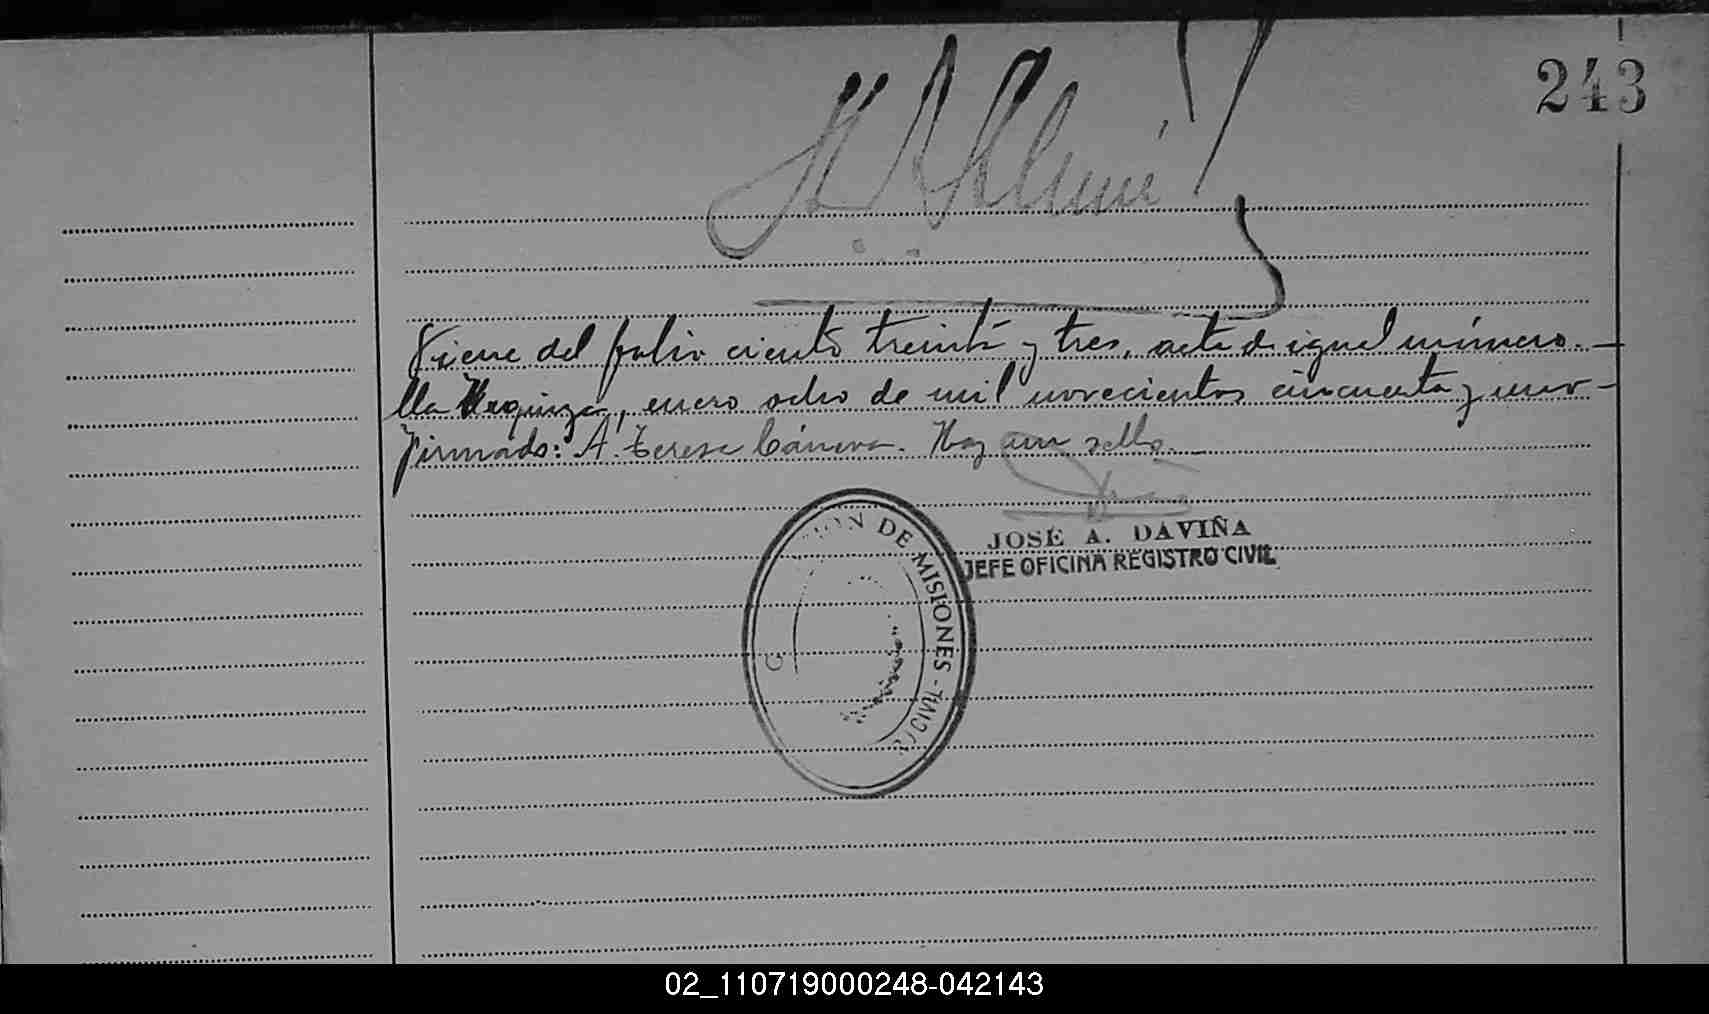 243
Viene del folio ciento treinta y tres, acta de igual número. —
lla Urquiza, enero ocho de mil novecientos cincuenta y uno -
Firmado: A. Teresa Cánova. Hay un sello.
JOSÉ A. DAVIÑA
JEFE OFICINA REGISTRO CIVIL
DE MISIONES - CIVIL
02_110719000248-042143